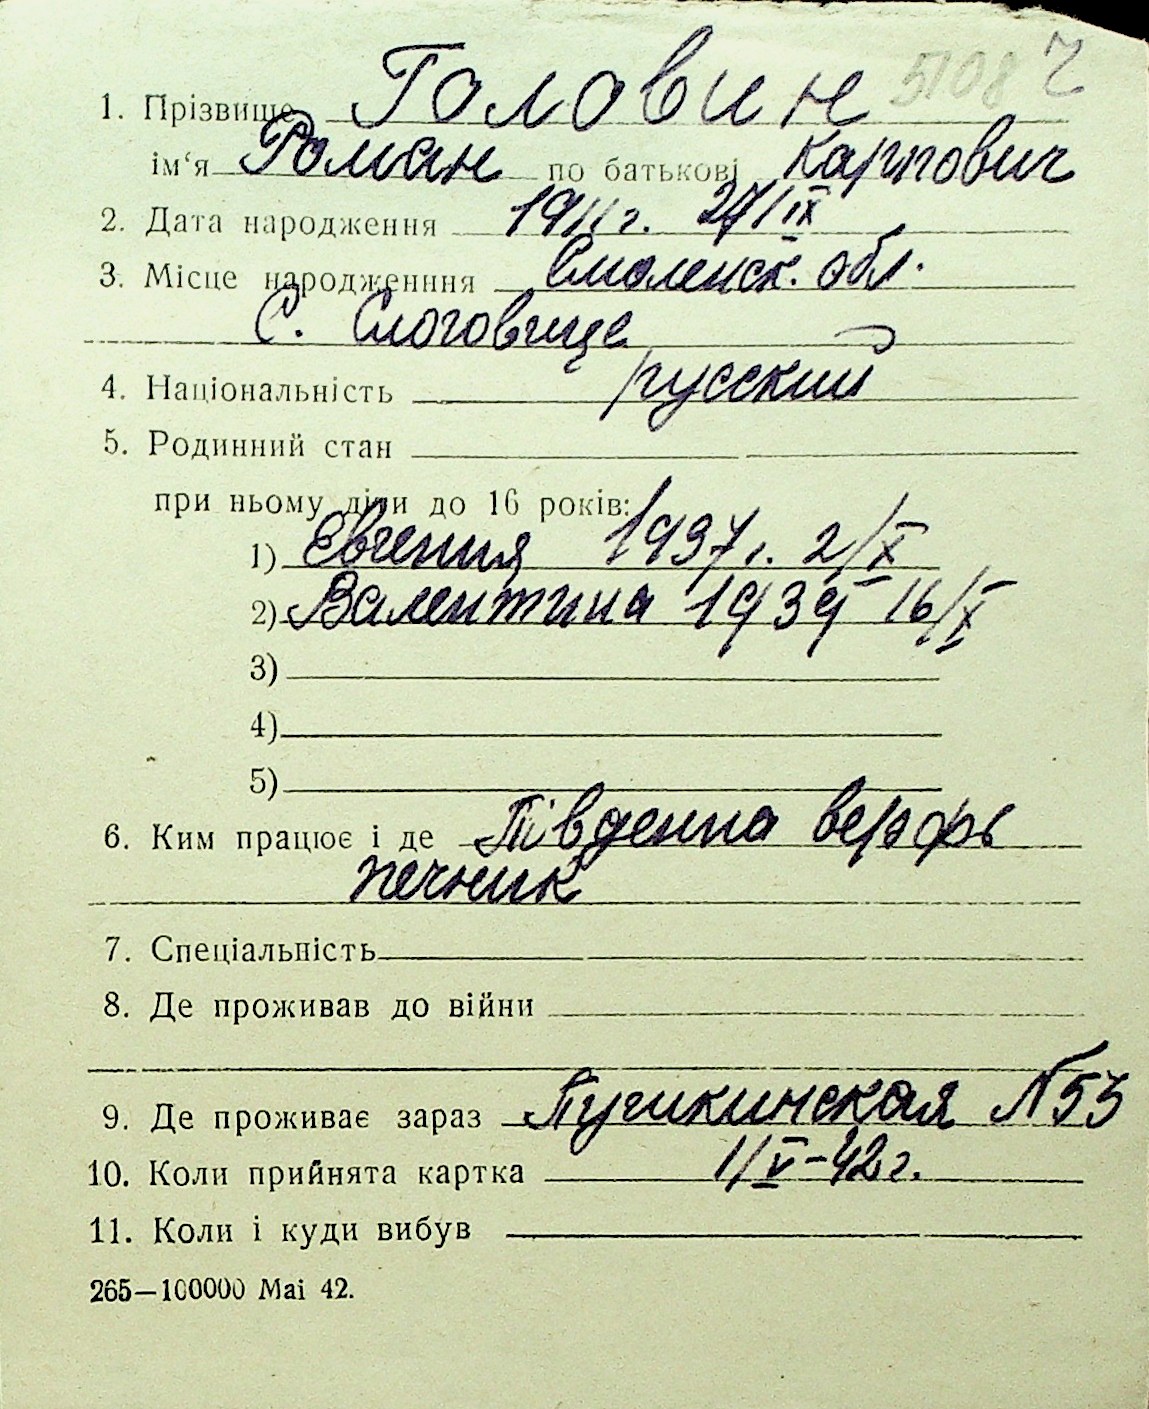 51087
1. Прізвище Головин
ім'я Роман по батькові Карпович
2. Дата народження 1911 г. 27/IX
3. Місце народженння Смоленск. обл.
С. Слоговище
4. Національність русский
5. Родинний стан
при ньому діти до 16 років:
1) Евгения 1937 г. 2/X
2) Валентина 1939 16/X
3)
4)
5)
6. Ким працює і де Південна верфь
печник
7. Спеціальність
8. Де проживав до війни
9. Де проживає зараз Пушкинская N 53
10. Коли прийнята картка 1/V-42 г.
11. Коли і куди вибув
265—100000 Маі 42.